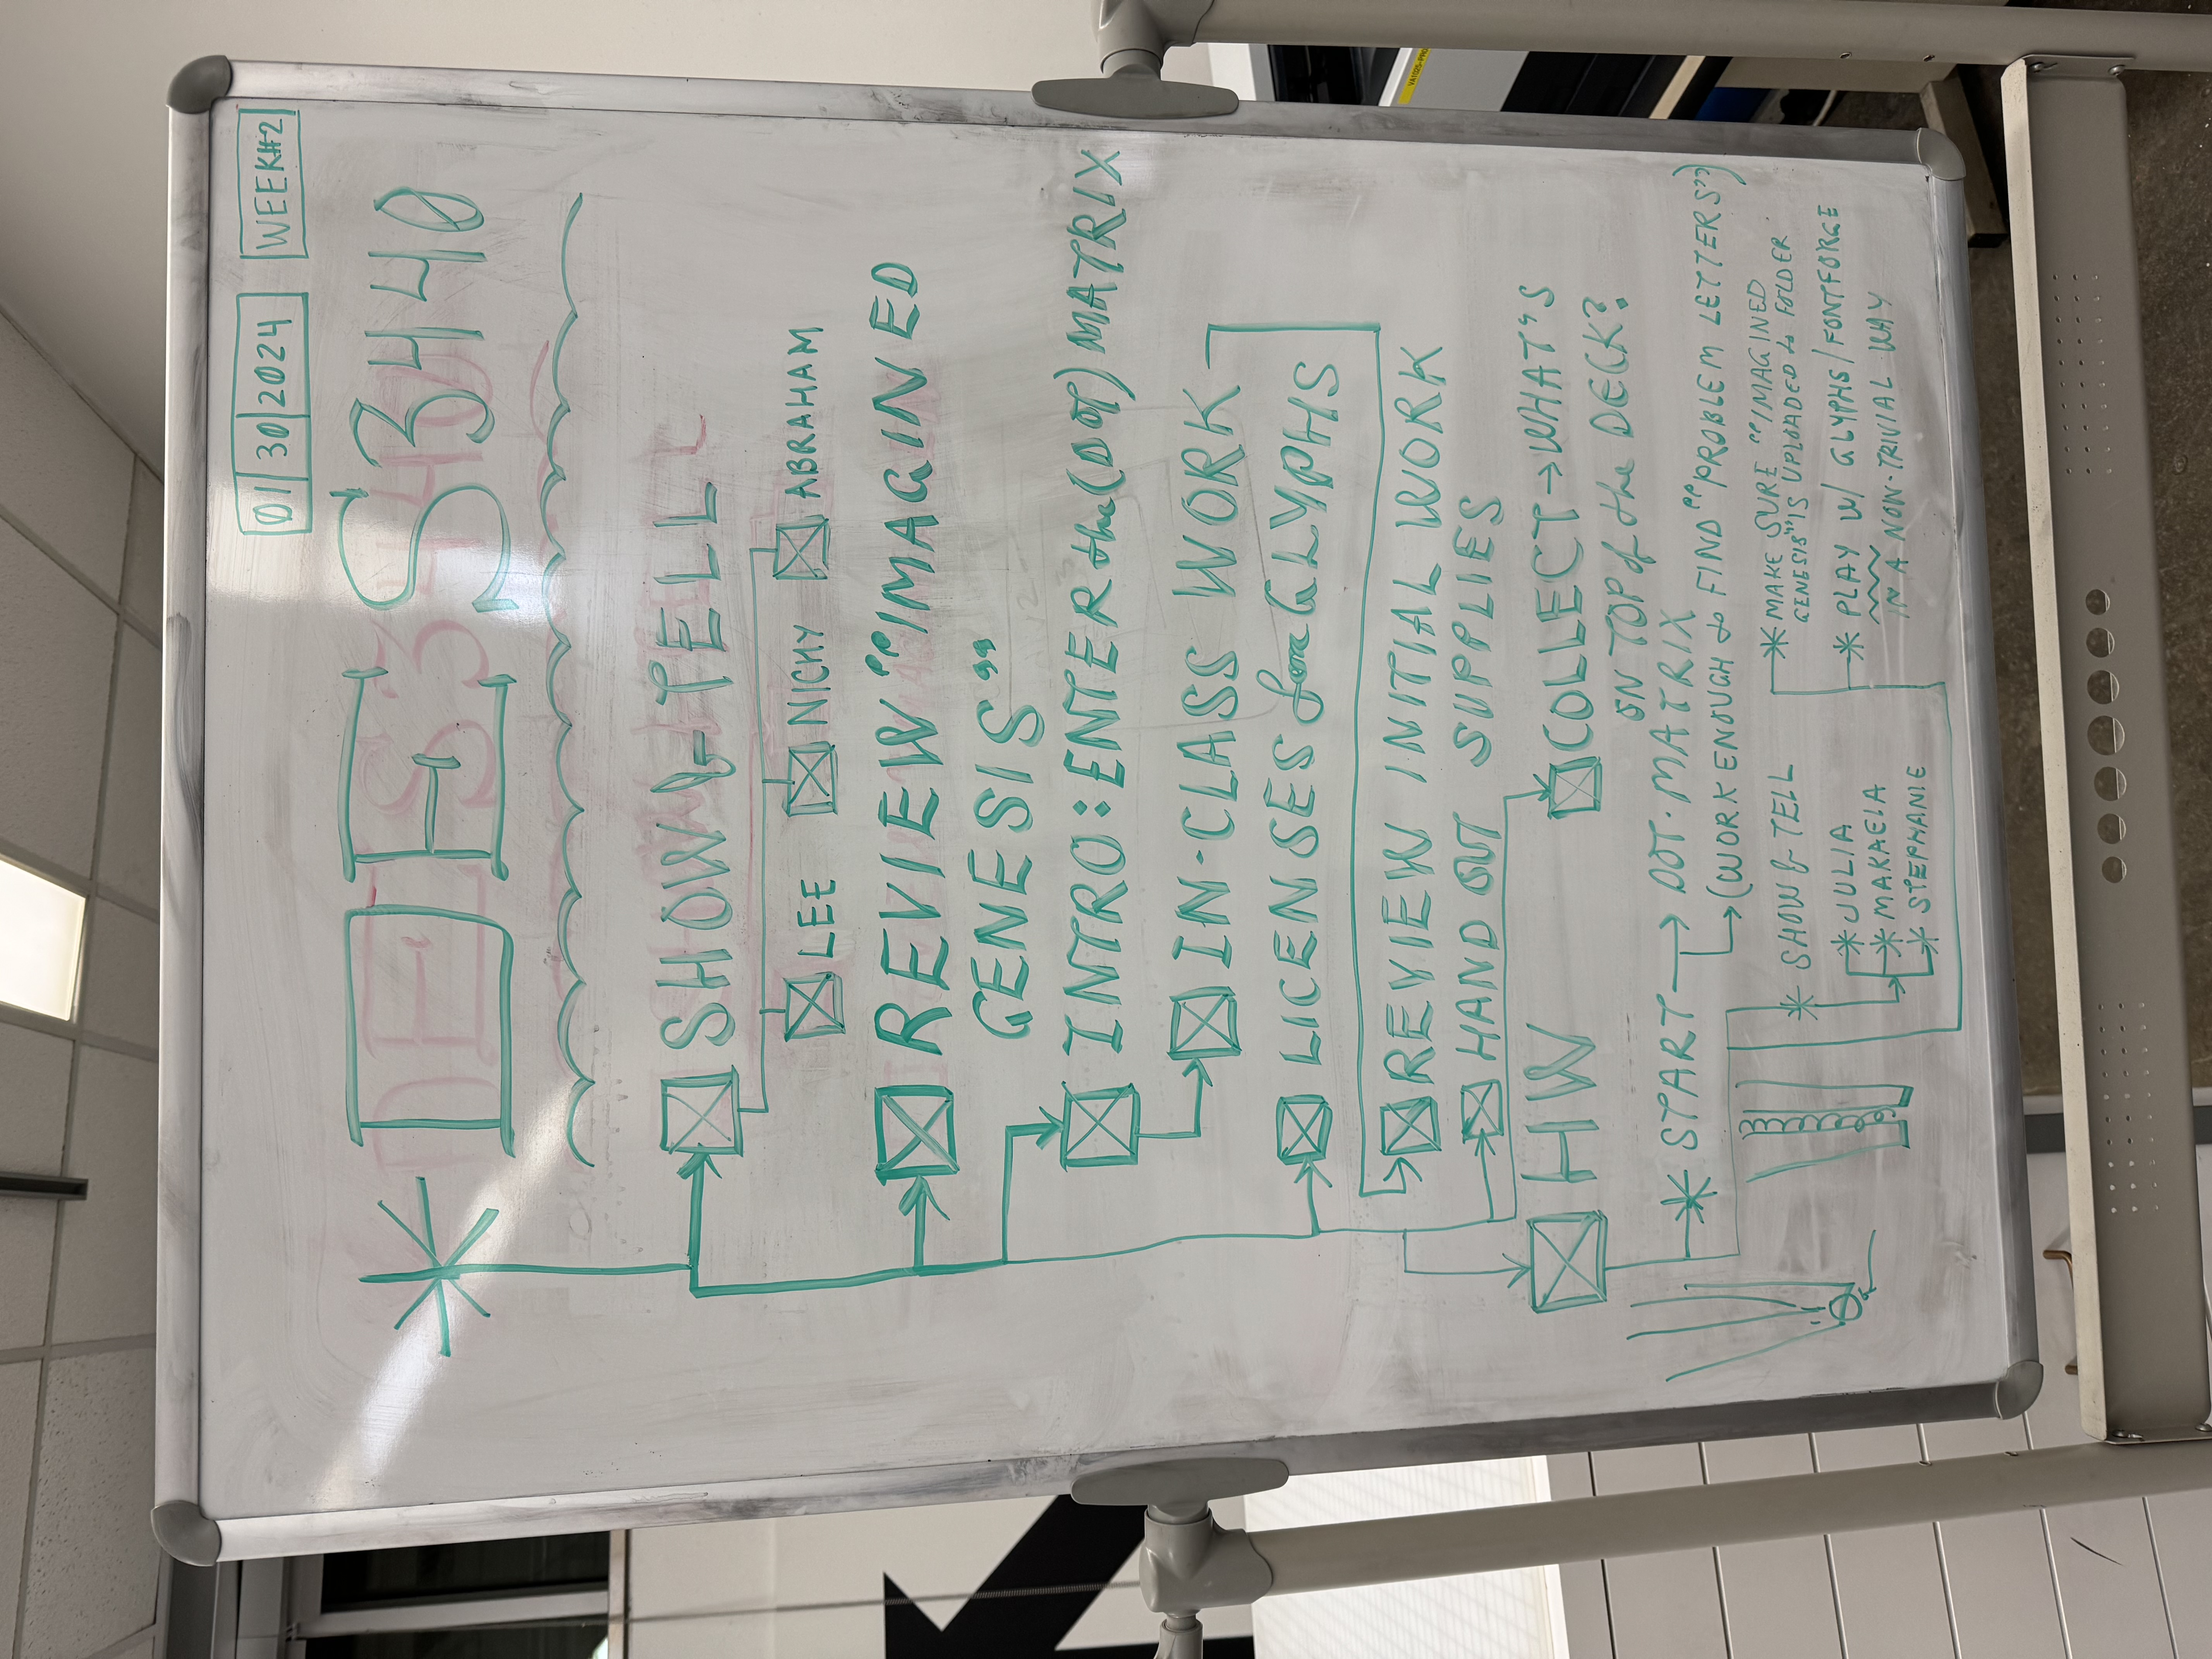 01 | 30 | 2024 WEEK#2
DES 3440
SHOW & TELL
LEE NICHY ABRAHAM
REVIEW “IMAGINED
GENESIS”
INTRO: ENTER the (DOT) MATRIX
IN-CLASS WORK
LICENSES for GLYPHS
REVIEW INITIAL WORK
HAND OUT SUPPLIES
HW
COLLECT → WHAT'S
ON TOP of the DECK?
START → DOT·MATRIX
(WORK ENOUGH to FIND “PROBLEM LETTERS”)
SHOW & TELL
JULIA
MAKAELA
STEPHANIE
MAKE SURE “IMAGINED
GENESIS” IS UPLOADED to FOLDER
PLAY W/ GLYPHS/FONTFORGE
IN A NON-TRIVIAL WAY